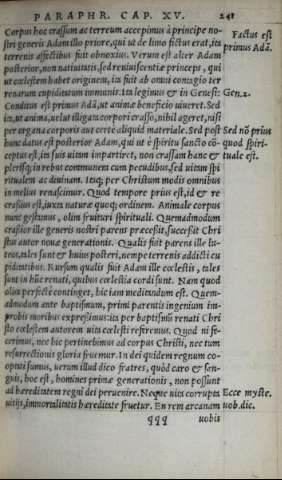 PARAPHR. CAP. XV. 241
Corpus hoc crassum ac terreum accepimus à principe no-
stri generis Adam illo priore, qui ut de limo fictus erat, ita
terrenis affectibus fuit obnoxius. Verum est alter Adam
posterior, non natiuitatis, sed reuiuiscentiæ princeps, qui
ut cœlestem habet originem, ita fuit ab omni contagio ter
renarum cupiditatum immunis. Ita legimus & in Genesi:
Conditus est primus Adã, ut animæ beneficio uiueret. Sed
ita, ut anima, uelut illigata corpori crasso, nihil ageret, nisi
per organa corporis aut certè aliquid materiale. Sed post
hunc datus est posterior Adam, qui ut è spiritu sancto cõ-
ceptus est, ita suis uitam impartiret, non crassam hanc &
plerisq; in rebus communem cum pecudibus, sed uitam spi
ritualem ac diuinam. Itaq; per Christum modis omnibus
in melius renascimur. Quod tempore prius est, id & re
crassius est, iuxta naturæ quoq; ordinem. Animale corpus
nunc gestamus, olim fruituri spirituali. Quemadmodum
crassior ille generis nostri parens præcessit, successit Chri
stus autor nouæ generationis. Qualis fuit parens ille lu-
teus, tales sunt & huius posteri, nempe terrenis addicti cu
piditatibus. Rursum qualis fuit Adam ille cœlestis, tales
sunt in hũc renati, quibus cœlestia cordi sunt. Nam quod
olim perfectè continget, hic iam meditandum est. Quem-
admodum ante baptismum, primi parentis ingenium im-
probis moribus expressimus: ita per baptismũ renati Chri
sto cœlestem autorem uita cœlesti referemus. Quod ni fe-
cerimus, nec hic pertinebimus ad corpus Christi, nec tum
resurrectionis gloria fruemur. In dei quidem regnum co-
optati sumus, uerum illud dico fratres, quòd caro & san-
guis, hoc est, homines primæ generationis, non possunt
ad hæreditatem regni dei peruenire. Neque uita corrupta
uitijs, immortalitatis hæreditate fruetur. En rem arcanam
qqq uobis
Factus est
primus Adã.
Gen.2.
Sed nõ prius
quod spiri-
tuale est.
Ecce myste.
uob. dic.